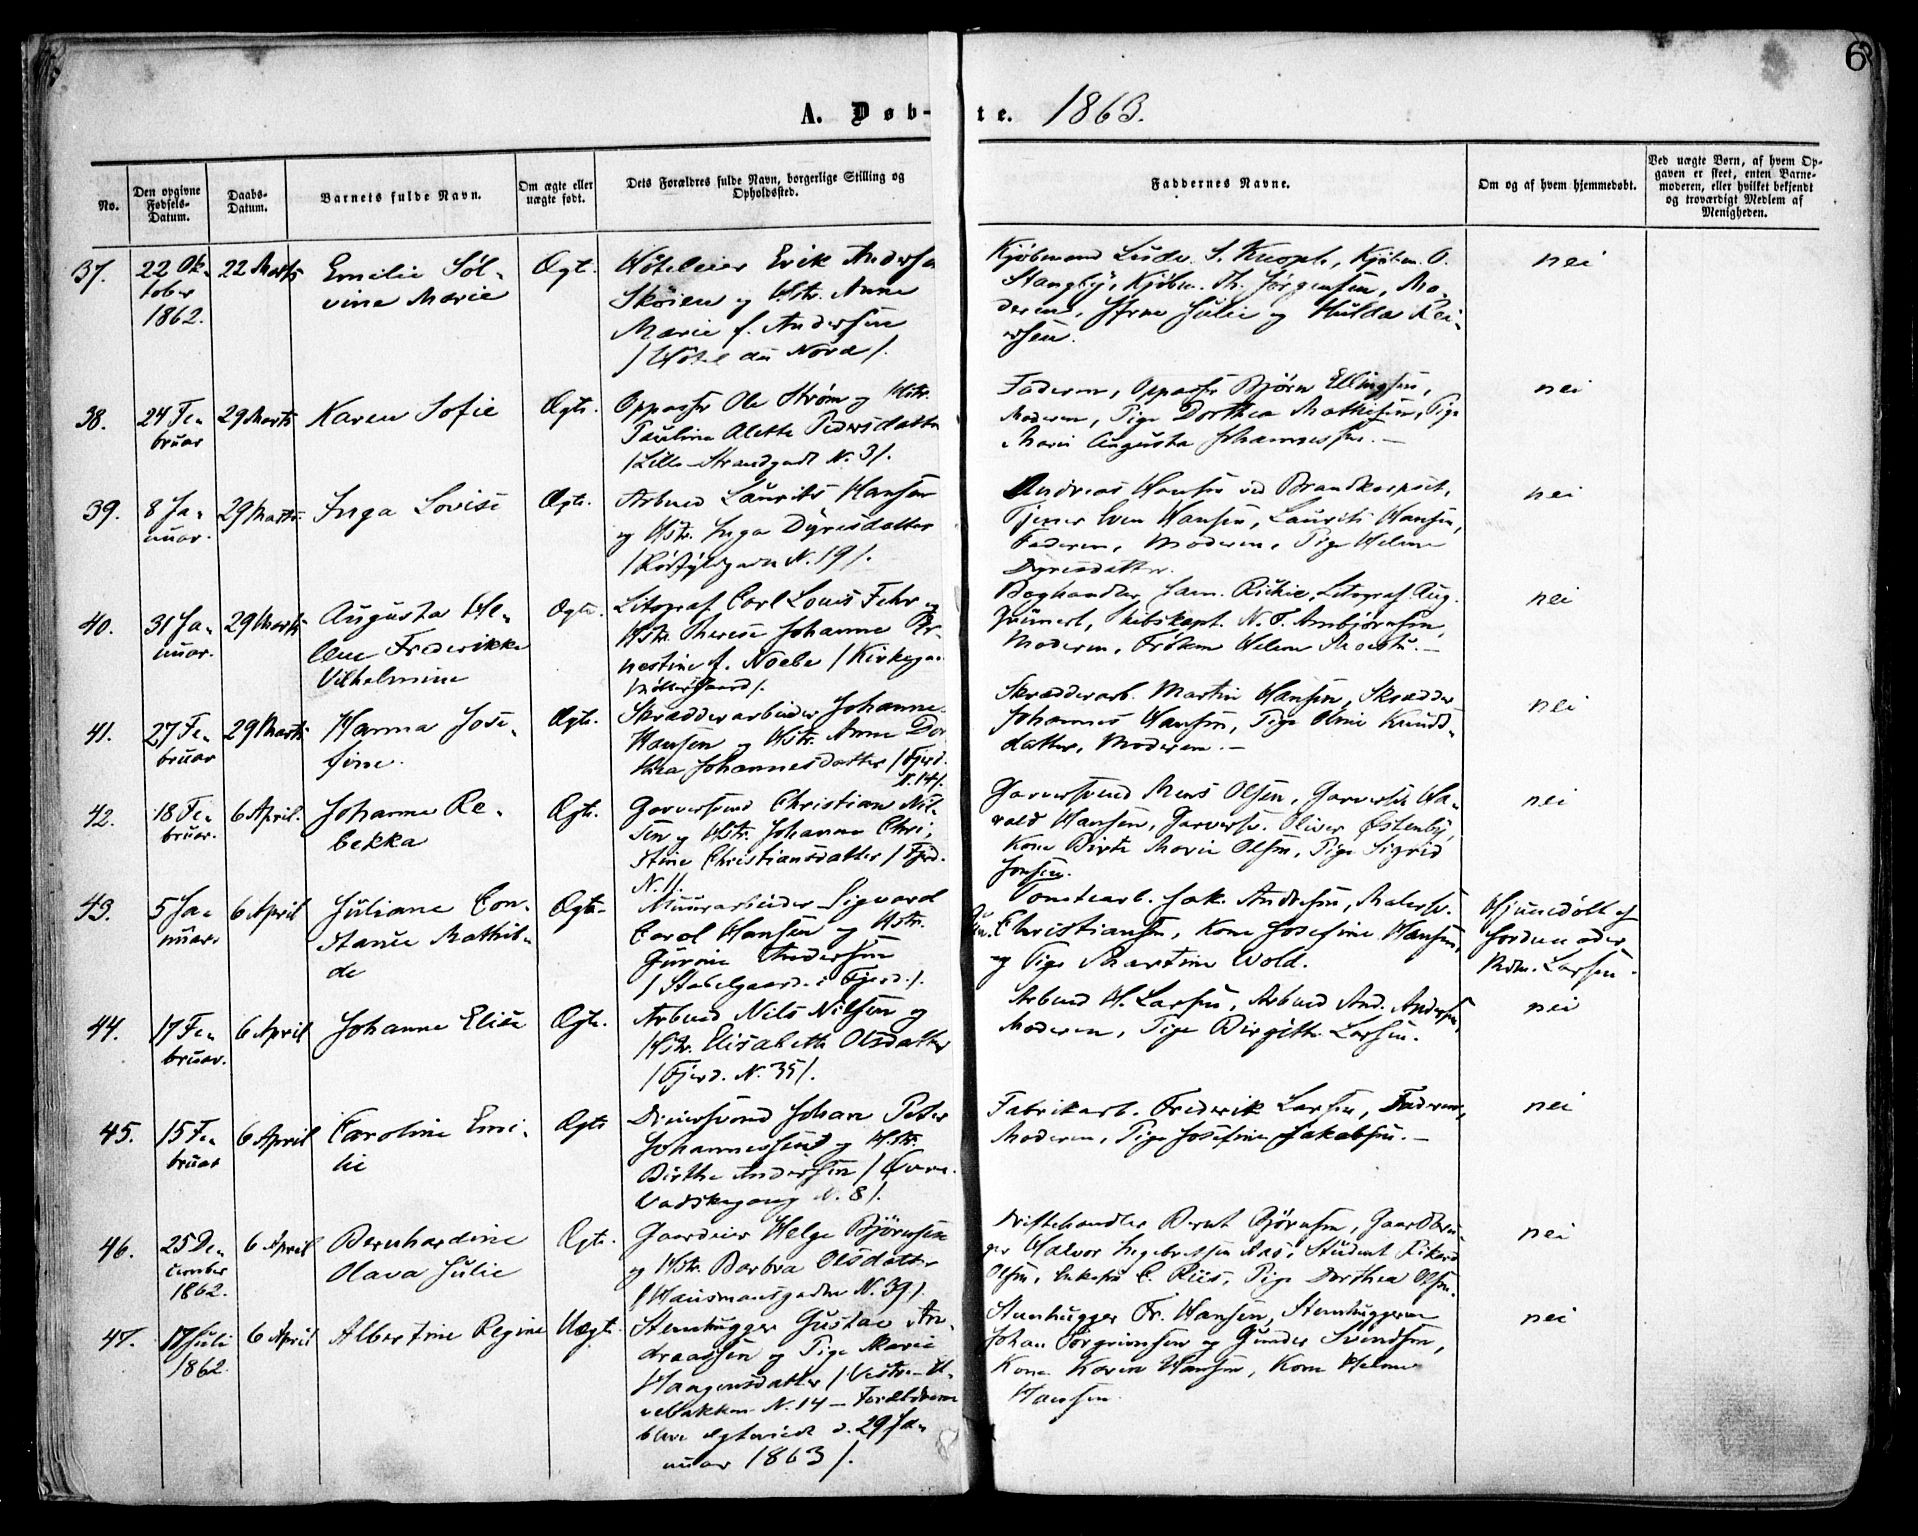 6
A. Døb-te. 1863.
No.
Den opgivne Fødsels-Datum.
Daabs-Datum.
Barnets fulde Navn.
Om ægte eller uægte født.
Dets Forældres fulde Navn, borgerlige Stilling og Opholdssted.
Faddernes Navne.
Om og af hvem hjemmedøbt.
Ved uægte Børn, af hvem Opgaven er skeet, enten Barnemoderen, eller hvilket bekjendt og troværdigt Medlem af Menigheden.
37.
22 Ok-
tober
1862.
22 Marts
Emilie Søl-
vine Marie
Ægt.
Hôteleier Erik Anderse
Skøien og Hstr. Anne
Marie f. Andersen
/Hôtel du Nord/.
Kjøbmand S. Knoph, Kjøbm. O.
Stangby, Kjøbm. Th. Jørgensen, Mo-
deren, Julie og Hulda Rei-
ersen.
nei
38.
24 Fe-
bruar
29 Marts
Karen Sofie
Ægte.
Oppasser Ole Strøm og Hstr.
Pauline Alette Pedersdatter
/Lille-Strandgade N. 3/.
Faderen, Oppasser Bjørn Ellingsen,
Moderen, Pige Dorthea Mathisen, Pige
Marie Augusta Johannessen.—
nei
39.
8 Ja-
nuar.
29 Marts.
Inga Lovise
Ægte.
Arbmd Laurits Hansen
og Hstr. Inga Dyresdatter
N. 19/.
Andreas Hansen ved Brandkorpset,
Tjener Even Hansen, Laurits Hansen,
Faderen, Moderen, Pige Helene
Dyresdatter.
nei
40.
31 Ja-
nuar.
29 Marts
Augusta He-
lene Frederikke
Vilhelmine
Ægte
Litograf Carl Louis Fehr og
Hstr. Therese Johanne Er-
nestine f. Noebe /Kirkega
Møllergaard/.
Boghandler Jam. Richie, Litograf Aug.
Skibskapt. N. F. Ambjørnsen,
Moderen, Frøken Helene
nei
41.
27 Fe-
bruar
29 Marts
Hanna Jose-
fine.
Ægte.
Skrædderarbeider Johanne-
Hansen og Hstr. Anne Dor
thea Johannesdatter /Fjerd.
N. 14/.
Skrædderarb. Martin Hansen, Skrædder
Johannes Hansen, Pige Oline Knuds-
datter, Moderen.—
nei
42.
18 Fe-
bruar.
6 April.
Johanne Re-
bekka
Ægte.
Garversvend Christian Nil-
sen og Hstr. Johanne Chri-
stine Christiansdatter /Fjerd.
N. 11.
Garversvend Mens Olsen, Garversv. Ha-
rald Hansen, Garversv. Oliver Østenby,
Kone Birte Marie Olsen, Pige Sigrid
Jonsen.
nei
43.
5 Ja-
nuar.
6 April
Juliane Con-
stance Mathil-
de
Ægte.
Muurarbeider Sigvard
Carol Hansen og Hstr.
Gurone Andersen
/Stabelgaard. i Fjerd./.
Tomtearb. Jak. Andersen, Malersv.
Christiansen, Kone Josefine Hansen,
og Pige Martine Wold.
Hjemmedøbt af
Jordemoder
Mdm. Larsen.
44.
17 Fe-
bruar.
6 April
Johanne Elise
Ægte.
Arbmd Nils Nilsen og
Hstr. Elisabeth Olsdatter
/Fjerd. N. 35/.
Arbmd H. Larsen, Arbmd And. Andersen,
Moderen, Pige Birgitte Larsen.
nei
45.
15 Fe-
bruar
6 April
Caroline Emi-
lie
Ægte
Dreiersvend Johan Peter
Johannessen og Hstr.
Birthe Andersen /Øvre-
Vadskegang N. 8/.
Fabrikarb. Frederik Larsen, Faderen,
Moderen, Pige Josefine Jakobsen.—
nei
46.
25 De-
cember
1862.
6 April
Bernhardine
Olava Julie
Ægte.
Gaardeier Helge Bjørnsen
og Hstr. Barbra Olsdatter
/Hausmansgaden N. 39/.
Driftehandler Bernt Bjørnsen, Gaardbru-
ger Halvor Ingebretsen Aas, Student Rikard
Olsen, Enkefru C. Riis, Pige Dorthea Olsen.
nei
47.
17 Juli
1862.
6 April
Albertine Regine
Uægte.
Stenhugger Gustav An-
dreassen og Pige Marie
Haagensdatter /Vestre-El-
vebakken N. 14 — Forældrene
bleve ægteviet d. 29 Ja-
nuar 1863/.
Stenhugger Fr. Hansen, Stenhuggerne
Johan Torgrimsen og Gunder Svendsen,
Kone Karen Hansen, Kone Helene
Hansen.
nei